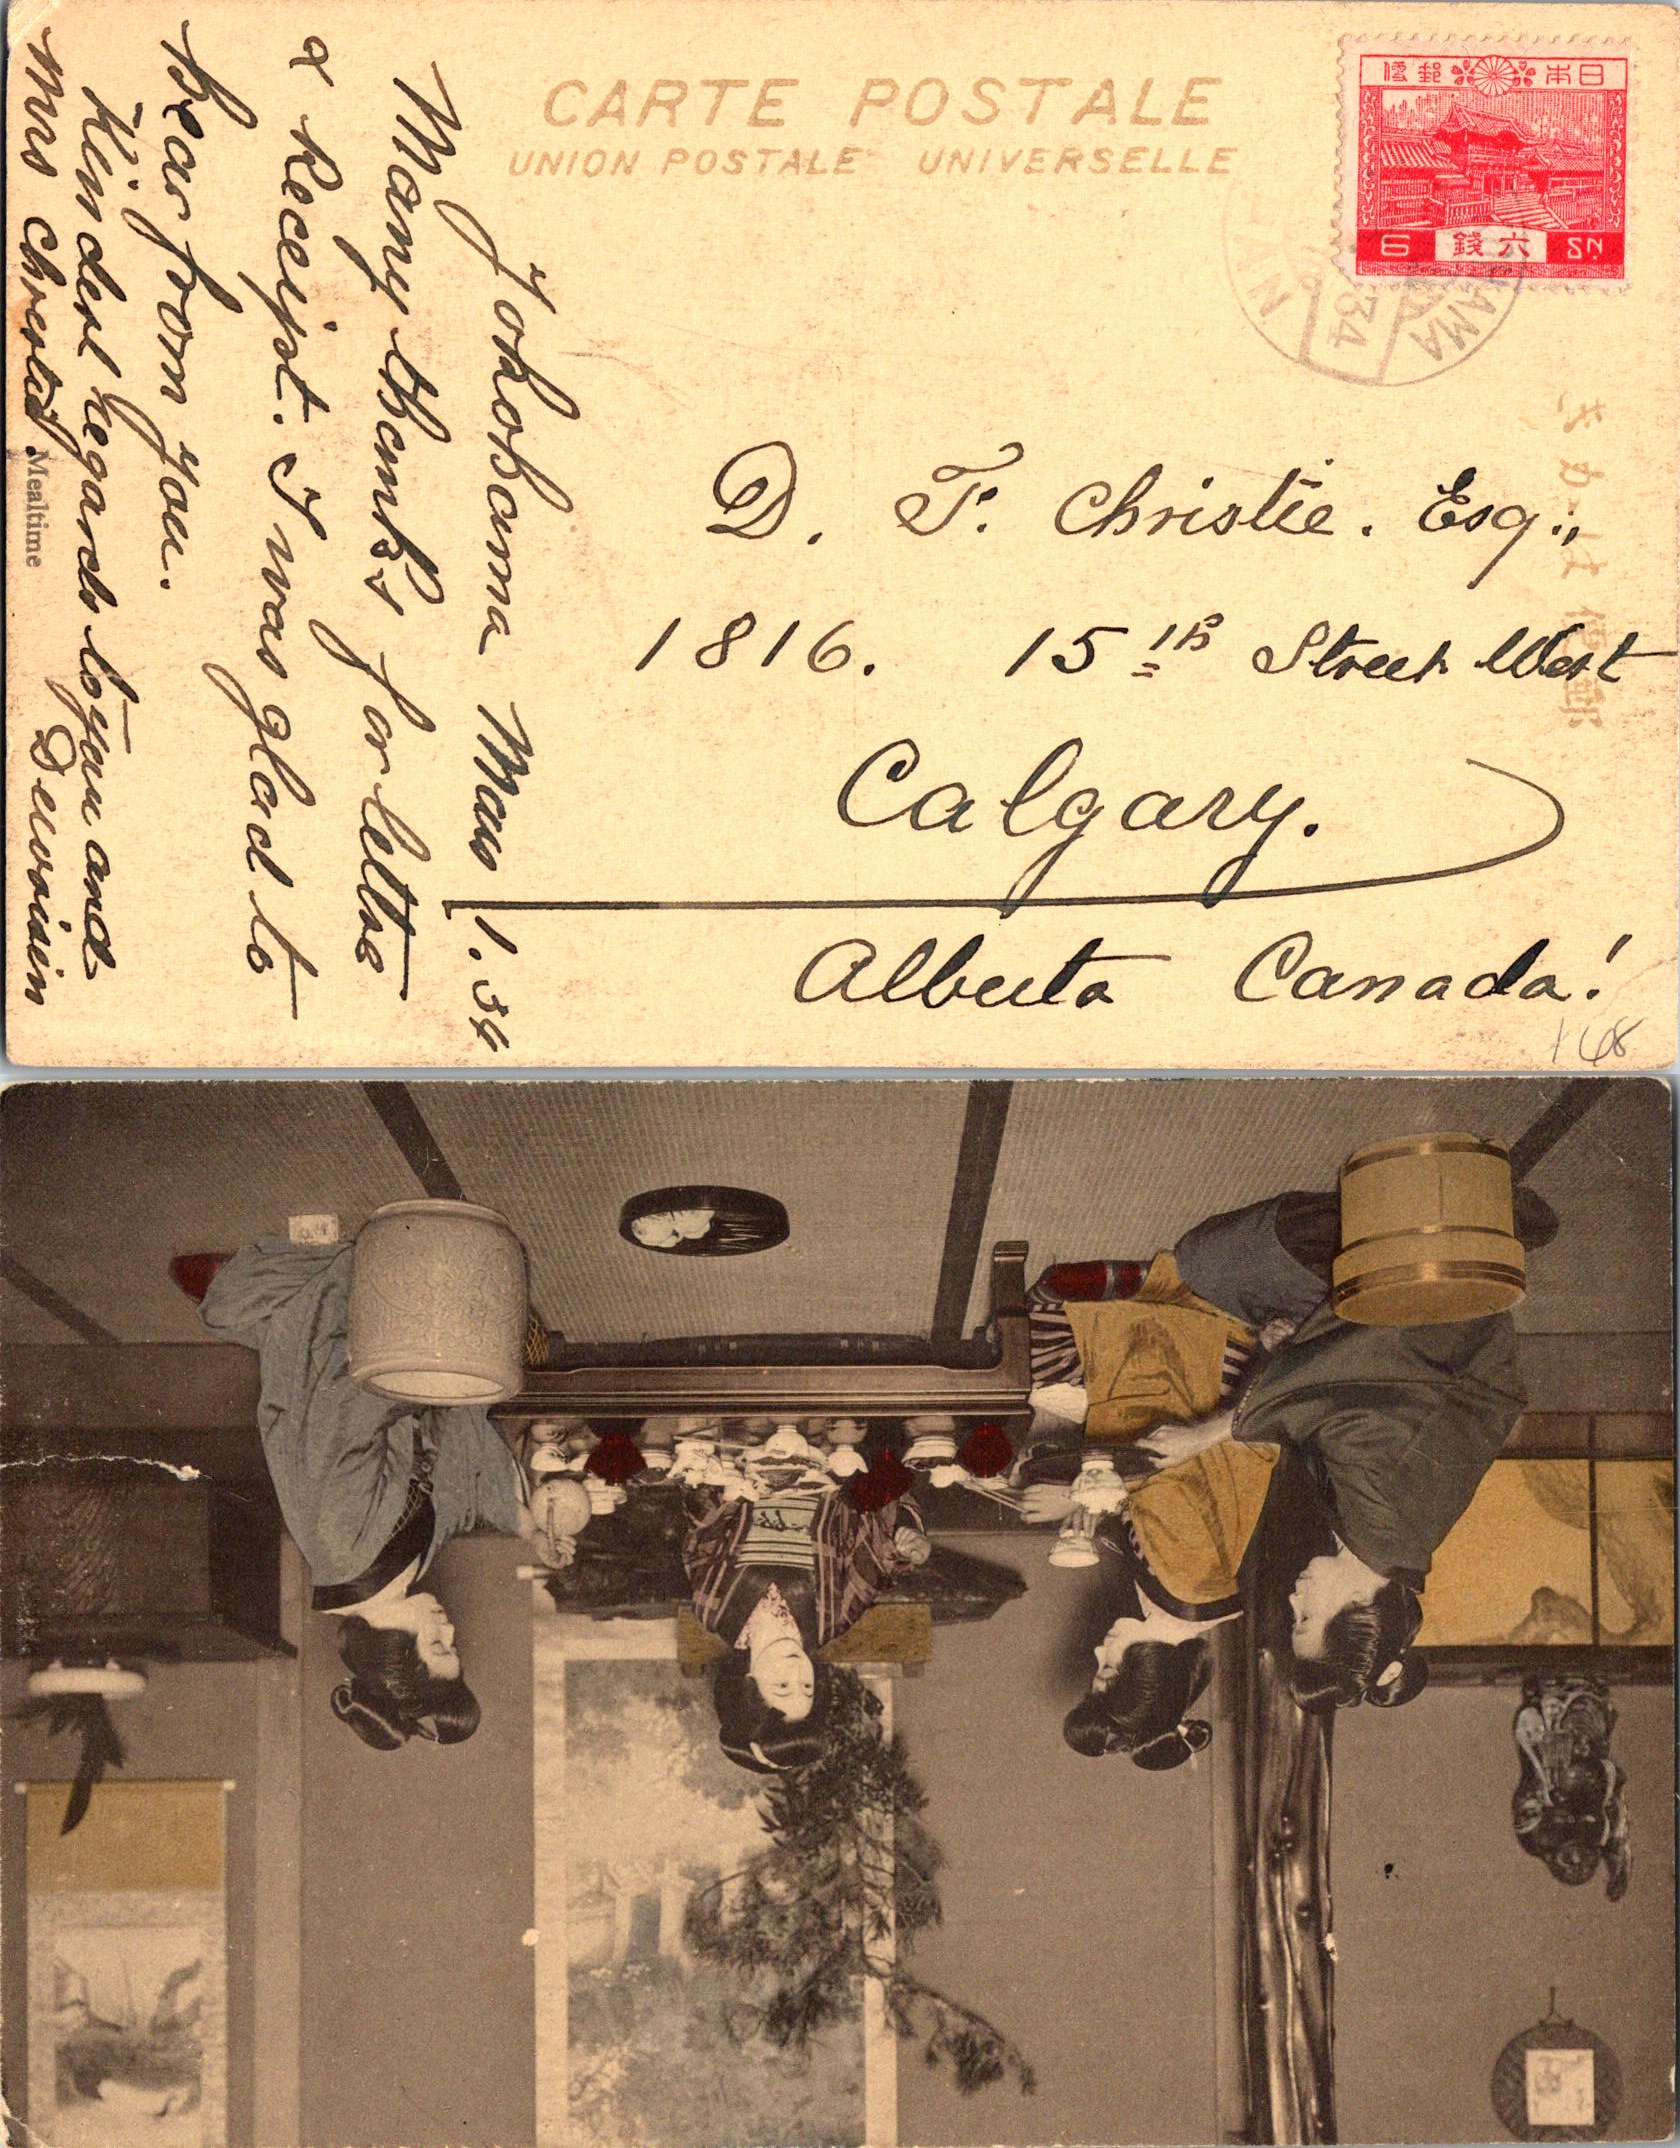 CARTE POSTALE
UNION POSTALE UNIVERSELLE
日本郵便
6 六錢 SN
34
D. F. Christie. Esq.,
1816. 15th Street West
Calgary.
Alberta Canada!
168
Yokohama Mar 1. 34
Many thanks for letter
& Receipt. I was glad to
hear from you.
Kindest regards to you and
Mrs Christie.
Mealtime
きかは便郵